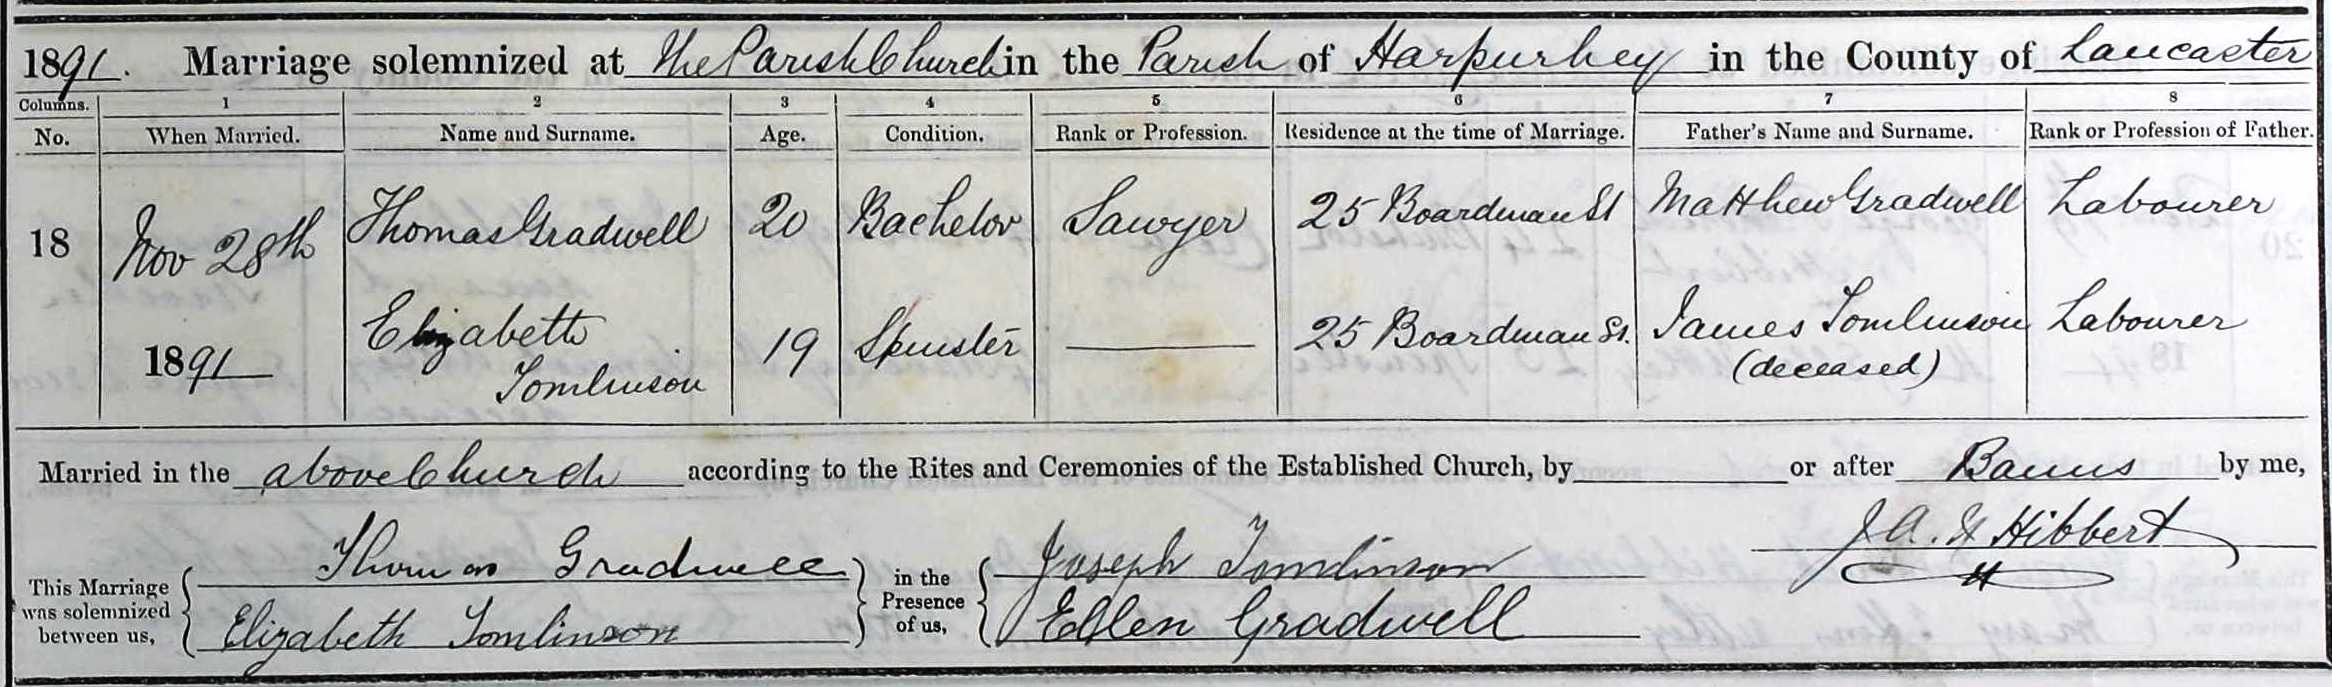 1891. Marriage solemnized at The Parish Church in the Parish of Harpurhey in the County of Lancaster
Columns. 1 2 3 4 5 6 7 8
No. When Married. Name and Surname. Age. Condition. Rank or Profession. Residence at the time of Marriage. Father's Name and Surname. Rank or Profession of Father.
18 Nov 28th Thomas Gradwell 20 Bachelor Sawyer 25 Boardman St Matthew Gradwell Labourer
1891 Elizabeth 19 Spinster 25 Boardman St. James Tomlinson Labourer
Tomlinson (deceased)
Married in the above Church according to the Rites and Ceremonies of the Established Church, by or after Banns by me,
Thomas Gradwell Joseph Tomlinson J A. Hibbert
This Marriage was solemnized between us, in the Presence of us,
Elizabeth Tomlinson Ellen Gradwell